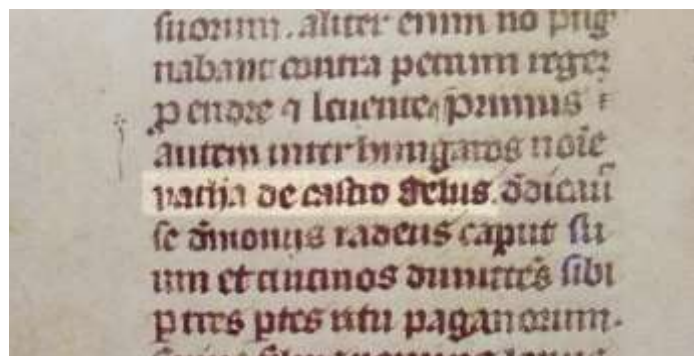 suorum. aliter enim nō pug
nabant contra petrum regeʒ
ꝓ endre ⁊ leuente. primus
autem inter hungaros noīe
vatha de castro Selus. ddicauit
se dmoniis radens caput su
um et cincinos dimittēs sibi
p tres ptes ritu paganorum.